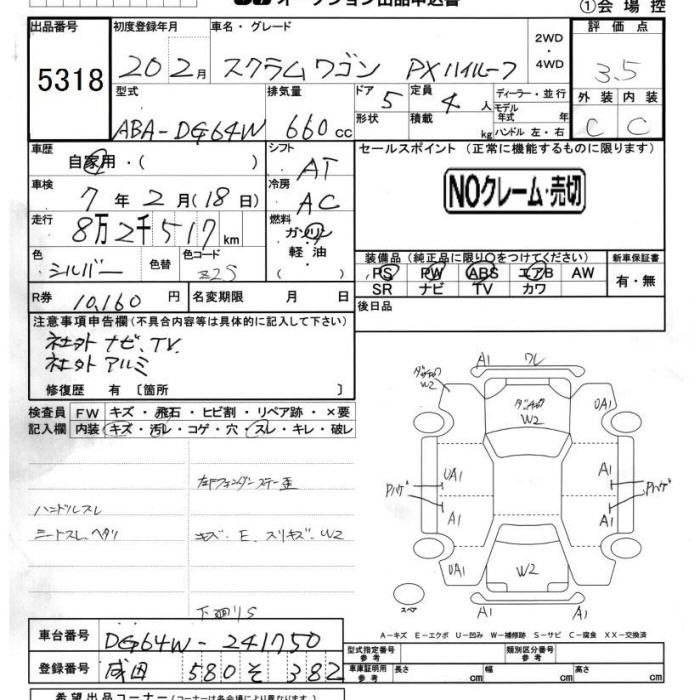 オークション出品申込書
①会場控
出品番号 初度登録年月 車名・グレード 2WD ・4WD 評価点
5318 20 2月 スクラムワゴン PXハイルーフ 3.5
型式 排気量 ドア 5 定員 4人 ディーラー・並行 外装 内装
ABA-DG64W 660cc 形状 積載 kg モデル年式 年 ハンドル 左・右 C C
車歴 自家用・( ) シフト AT セールスポイント (正常に機能するものに限ります)
車検 7年2月(18日) 冷房 AC NOクレーム・売切
走行 8万2千517km 燃料 ガソリン 軽油
装備品(純正品に限り○をつけてください) 新車保証書
色 シルバー 色替 色コード Z2S PS PW ABS エアB AW 有・無
SR ナビ TV カワ
R券 10,160円 名変期限 月 日 後日品
注意事項申告欄(不具合内容等は具体的に記入して下さい)
社外ナビ、TV
社外アルミ
修復歴 有〔箇所 〕
検査員 FW キズ・飛石・ヒビ割・リペア跡・×要
記入欄 内装 キズ・汚レ・コゲ・穴・スレ・キレ・破レ
A1 ワレ
W2
W2
UA1
UA1 A1
A1 A1
UA1 W2 A1
A1 A1
スペア
ハンドルスレ
シートスレ、ヘタリ
キズ・E、スリキズ、W2
下廻りS
A-キズ E-エクボ U-凹み W-補修跡 S-サビ C-腐食 XX-交換済
車台番号 DG64W-241750
型式指定番号 参考 類別区分番号 参考
登録番号 成田 580 そ 382
車庫証明用 参考 長さ cm 幅 cm 高さ cm
希望出品コーナー(コーナーは各会場により異なります)